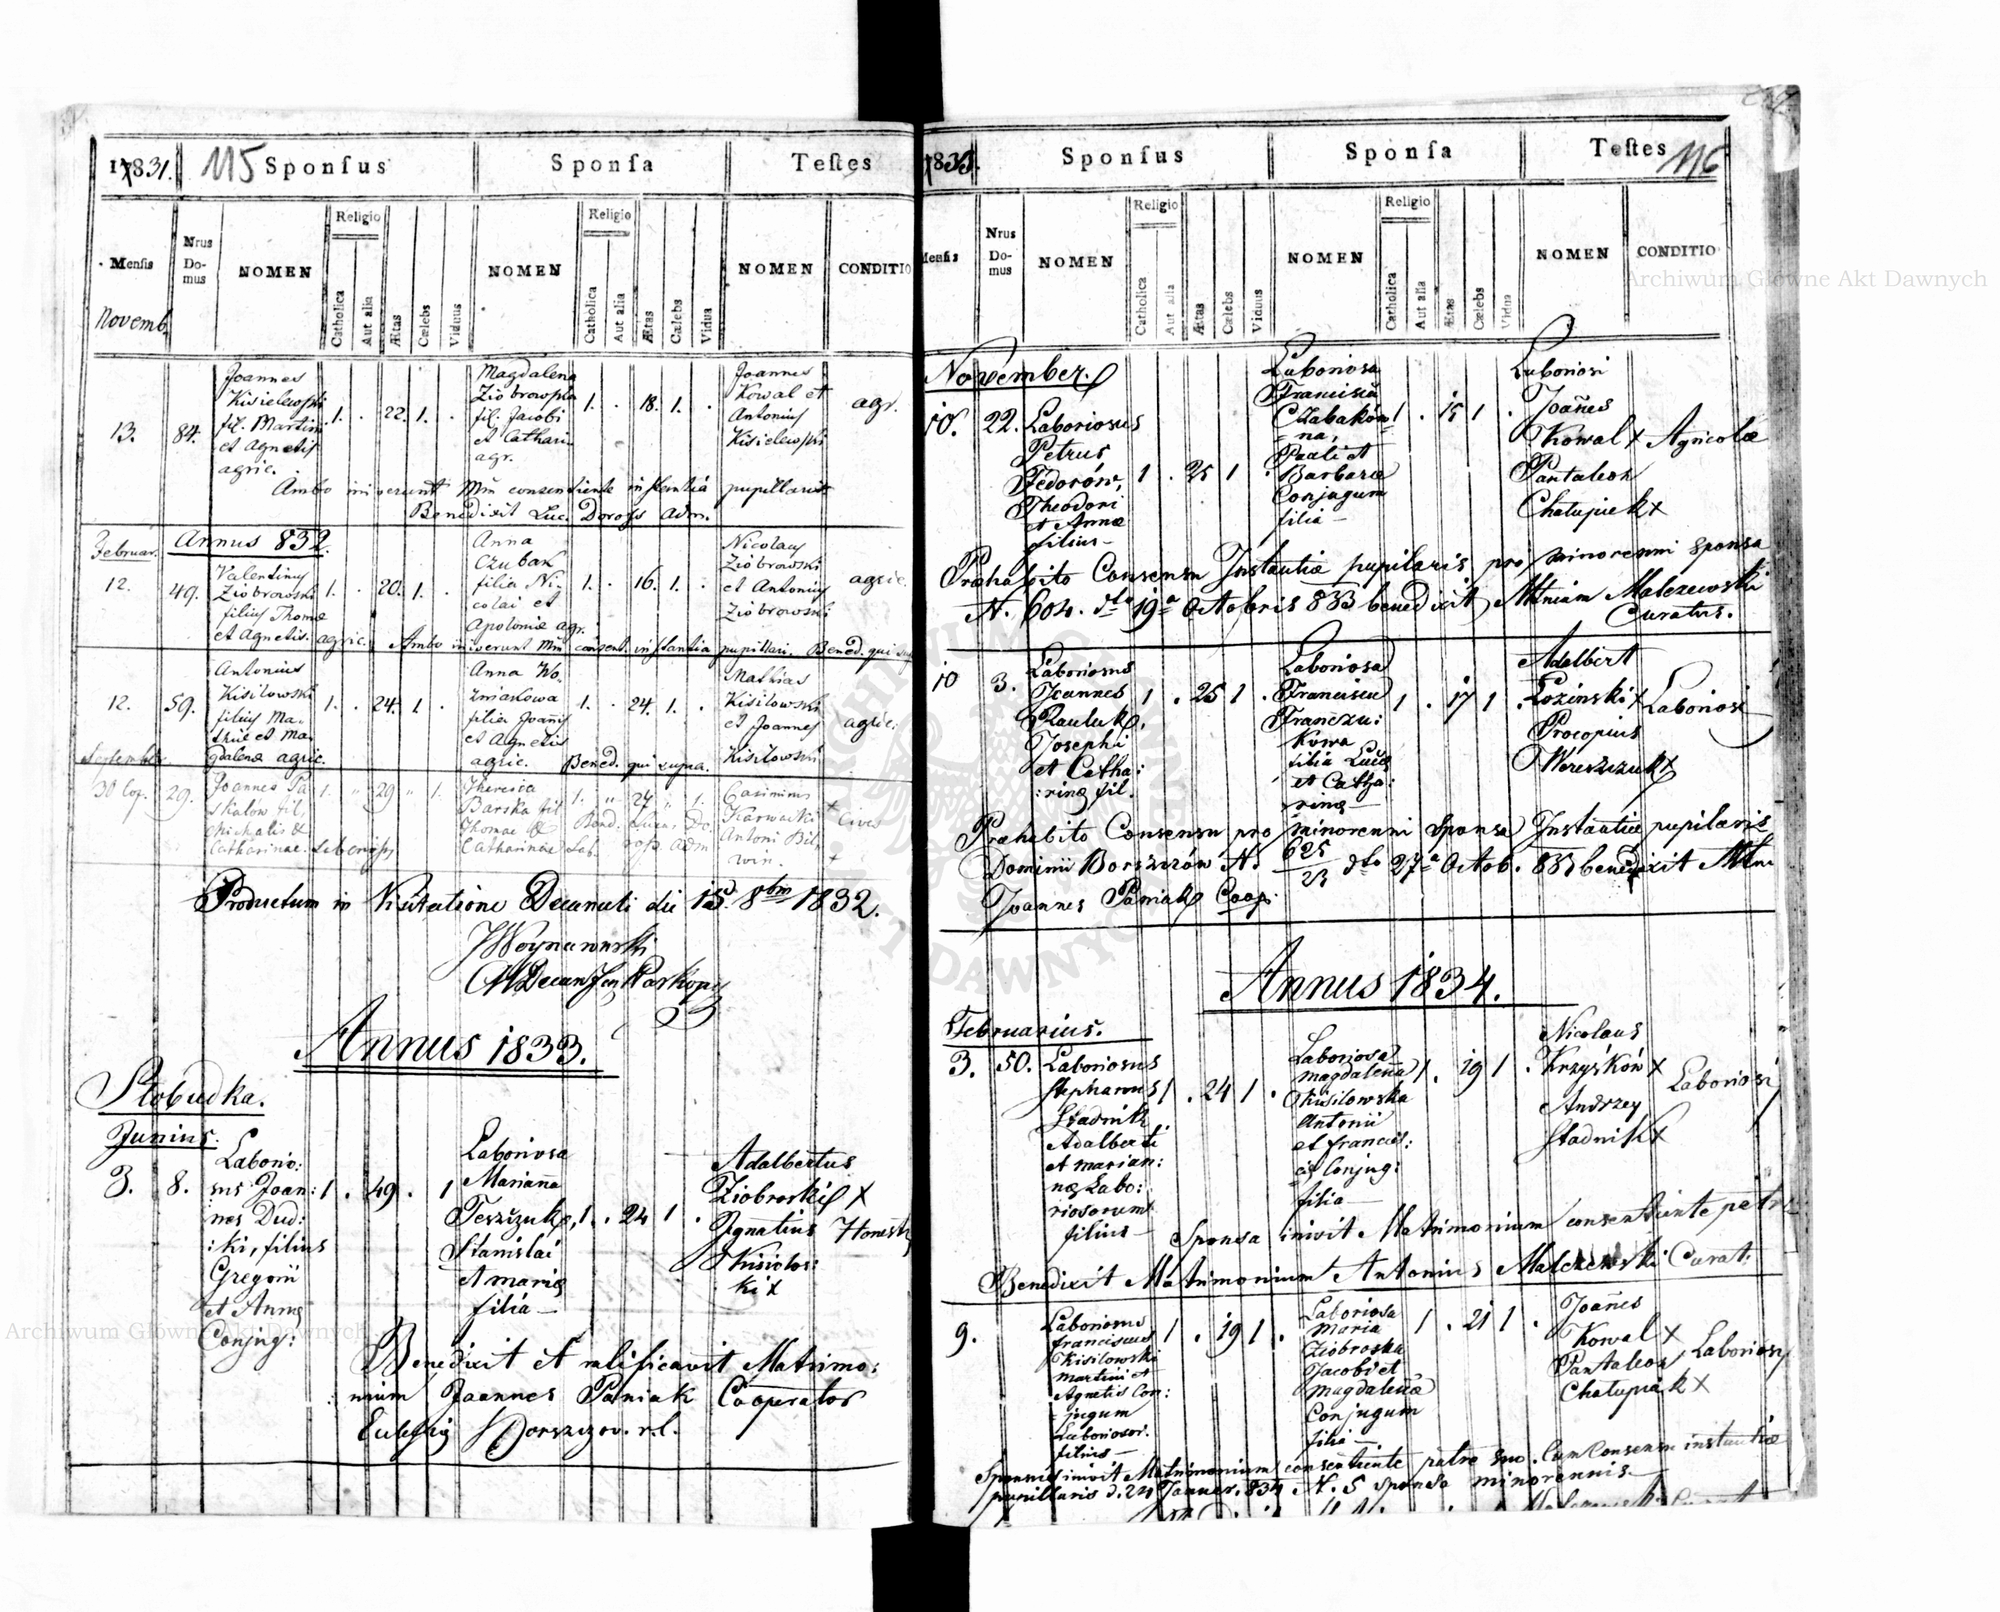 1831. 115 Sponsus Sponsa Testes
Mensis Nrus Domus NOMEN Religio Catholica Aut alia Ætas Cælebs Viduus NOMEN Religio Catholica Aut alia Ætas Cælebs Vidua NOMEN CONDITIO
Novemb.
13. 84. Joannes
Kisielewski
fil. Martini
et Agnetis
agric.
1. . 22. 1. .
Magdalena
Ziobrowska
fil. Jacobi
et Cathari
agr.
1. . 18. 1. .
Joannes
Kowal et
Antonius
Kisielewski
agr.
Ambo inierunt Mm consentiente instantia pupillari
Benedixit Luc. Doross Adm.
Februar. Annus 832.
12. 49. Valentinus
Ziobrowski
filius Thomæ
et Agnetis. agric.
1. . 20. 1. .
Anna
Czubak
filia Ni
colai et
Apoloniæ agr.
1. . 16. 1. .
Nicolaus
Ziobrowski
et Antonius
Ziobrowski
agric.
Ambo inierunt Mm consent. instantia pupillari. Bened. qui sup
12. 59. Antonius
Kisilowski
filius Ma
thiæ et Ma
gdalenæ agric.
1. . 24. 1. .
Anna Wo
zniakowa
filia Joannis
et Agnetis
agric.
1. . 24. 1. .
Mathias
Kisilowski
et Joannes
Kisilowski
agric.
Bened. qui supra.
September
30 Cop. 29. Joannes Pa
skalow fil,
Michalis &
Catharinae. Laboriosi
1. " 29 " 1.
Theresia
Barska fil
Thomae &
Catharinae Lab.
1. " 27 " 1.
Casimirus
Karwacki
Antoni Bil
win. +
+ Cives
Bened: Lucas Do
ross. Adm
Productum in Visitatione Decanali die 15 8bris 1832.
JWoynarowski
Annus 1833.
Slobudka.
Junius.
3. 8. Laborio:
sus Joan:
nes Dud:
:ki, filius
Gregorii
et Annæ
Conjug:
1 . 49 . 1
Laboriosa
Marianna
Teszczuk,
Stanislai
et mariæ
filia —
1 . . 24 1 .
Adalbertus
Ziobroski X
Ignatius
Kisielos:
ki X
Honesti
Benedixit et ratificavit Matrimo:
nium Joannes Paniak Cooperator
Ecclesiæ Borszczov. r.l.
1833. Sponsus Sponsa Testes 116
Mensis Nrus Domus NOMEN Religio Catholica Aut alia Ætas Cælebs Viduus NOMEN Religio Catholica Aut alia Ætas Cælebs Vidua NOMEN CONDITIO
November.
10. 22. Laboriosus
Petrus
Fedorów,
Theodori
et Annæ
filius —
1 . 25 1 .
Laboriosa
Francisca
Czabaków
na,
Pauli et
Barbaræ
Conjugum
filia —
1 . 15 1 .
Laboriosi
Joañes
Kowal X
Pantaleon
Chatupiek X
Agricolæ
Præhabito Consensu Instantiæ pupilaris pro minorenni sponsa
N. 604. dto 19a Octobris 833 benedixit Mtnium Malczewski
Curatus.
10 3. Laboriosus
Joannes
Pauluk,
Josephi
et Catha:
:rinæ fil.
1 . 25 1 .
Laboriosa
Francisca
Franczu:
kowa
filia Lucæ
et Catha:
rinæ —
1 . 17 1 .
Adalbert
Lozinski X
Procopius
Wereszczuk X
Laboriosi
Præhabito Consensu pro minorenni Sponsa Instantiæ pupilaris
Dominii Borszczów N. 625/23 dto 27a Octob. 833 benedixit Mtni
Joannes Paniak Coop:
Annus 1834.
Februarius.
3. 50. Laboriosus
Stephanus
Stadnik,
Adalberti
et marian:
næ Labo:
riosorum
filius —
1 . 24 1 .
Laboriosa
magdalena
Kisilowska
Antonii
et francis:
cæ Conjug:
filia —
1 . 19 1 .
Nicolaus
Krzyśków X
Andrzey
Stadnik X
Laboriosi
Sponsa inivit Matrimonium consentiente patre
Benedixit Matrimonium Antonius Malczewski Curat:
9. Laboriosus
franciscus
Kisilowski
martini et
Agnetis Con:
jugum
Laboriosor.
filius —
1 . 19 1 .
Laboriosa
Maria
Ziobroska
Jacobi et
magdalenæ
Conjugum
filia —
1 . 21 1 .
Joañes
Kowal X
Pantaleon
Chatupiak X
Laboriosi
Sponsus inivit Matrimonium consentiente patre suo. Cum Consensu instantiæ
pupillaris d. 24 Januar. 834 N. 5 sponsa minorennis.
Archiwum Główne Akt Dawnych
Archiwum Główne Akt Dawnych
ARCHIWUM GŁÓWNE AKT DAWNYCH